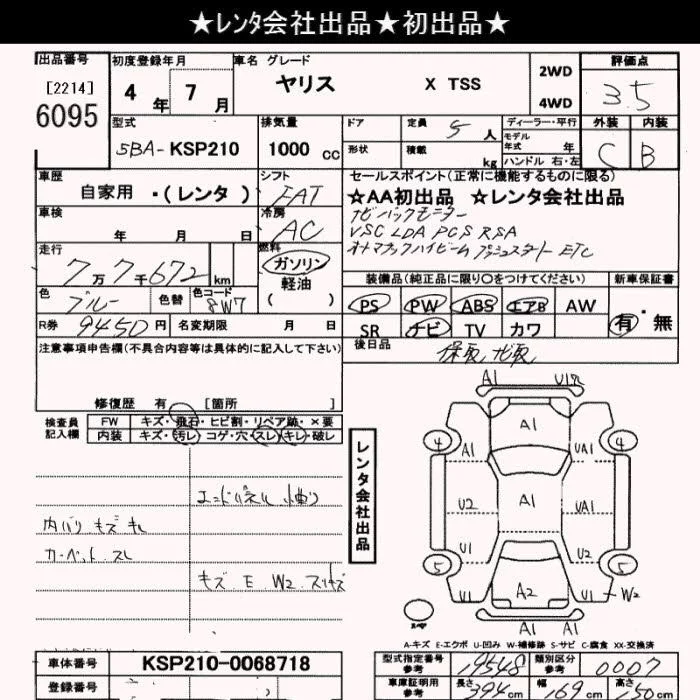 ★レンタ会社出品★初出品★
出品番号 初度登録年月 車名 グレード 評価点
[2214] 4年 7月 ヤリス X TSS 2WD 3.5
6095 4WD
型式 排気量 ドア 定員 5人 ディーラー・平行 外装 内装
モデル年式 年
5BA-KSP210 1000cc 形状 積載 kg ハンドル 右・左 C B
車歴 シフト セールスポイント(正常に機能するものに限る)
自家用 ・(レンタ) FAT ☆AA初出品 ☆レンタ会社出品
車検 冷房 ナビ バックモニター
年 月 日 AC VSC LDA PCS RSA
走行 燃料 オートマチックハイビーム プッシュスタート ETC
7万7千672km ガソリン 装備品(純正品に限り○をつけてください) 新車保証書
軽油
色 ブルー 色替 色コード 8W7 ( ) PS PW ABS エアB AW 有・無
R券 9450円 名変期限 月 日 SR ナビ TV カワ
注意事項申告欄(不具合内容等は具体的に記入して下さい) 後日品 保取, ナビ取,
修復歴 有 [箇所 ]
検査員記入欄 FW キズ・飛石・ヒビ割・リペア跡・×要
内装 キズ・汚レ・コゲ・穴・スレ・キレ・破レ
レンタ会社出品
エンドパネル
内バリ キズ キレ
カーペット スレ
キズ E W2
A1 U1
4 A1 A1 UA1 4
U2 A1 UA1
U1 U2
5 5
U1 A2 U1 W2
A1 A1
スペア
A-キズ E-エクボ U-凹み W-補修跡 S-サビ C-腐食 XX-交換済
車体番号 KSP210-0068718 型式指定番号 参考 19548 類別区分 参考 0007
登録番号 車庫証明用 参考 長さ 394cm 幅 169cm 高さ 150cm